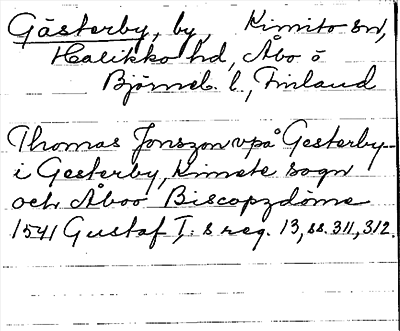 Gästerby, by, Kimito sn,
Halikko hd, Åbo ö
Björneb. l., Finland
Thomas Jonszon vpå Gesterby
i Gesterby, Kimete sogn
och Åboo Biscopzdöme
1541 Gustaf I:s reg. 13, ss. 311, 312.